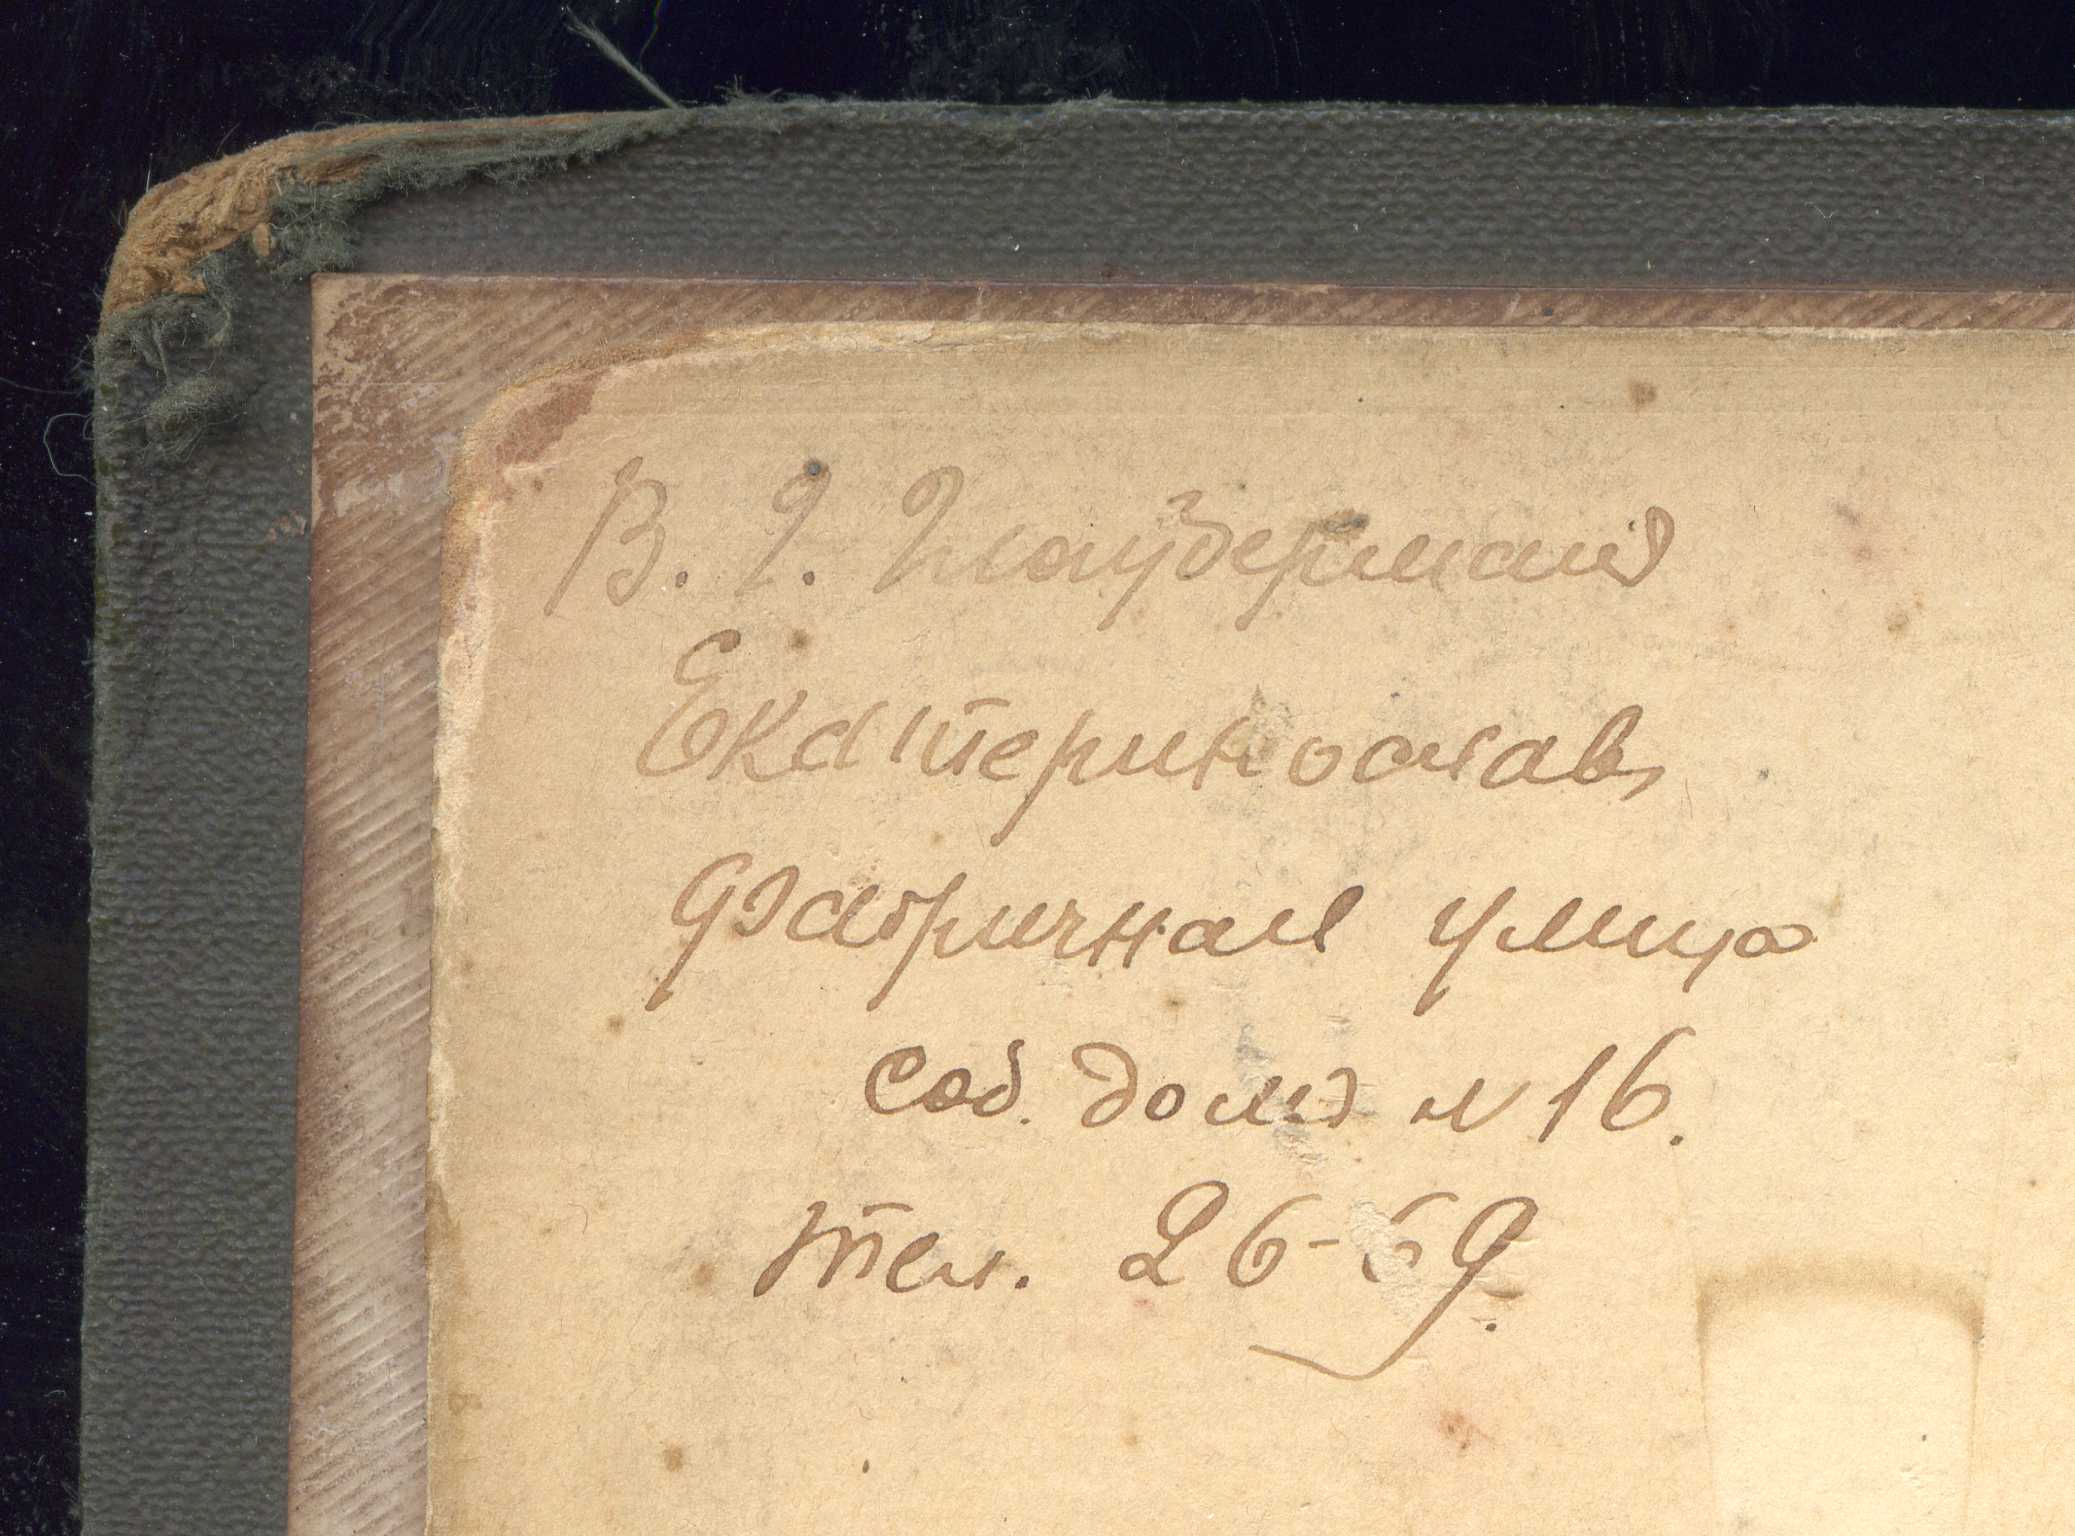 В. Г. Глаудерманъ
Екатеринославъ
Фабричная улица
соб. домъ № 16.
тел. 26-69.